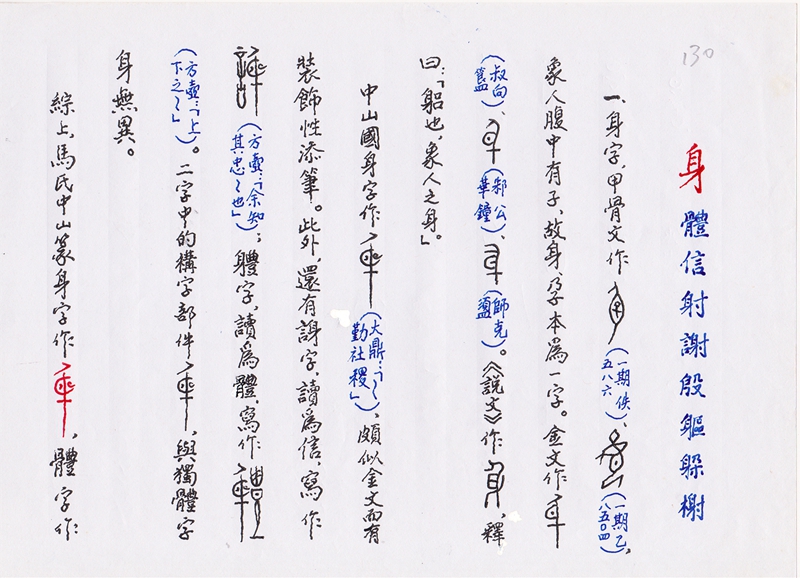 130
身 體信射謝殷軀躲榭
一、身字，甲骨文作（一期佚五八六）、（一期乙八五〇四），
象人腹中有子，故身、孕本為一字。金文作
（叔向簋）、（邾公華鐘）、（師克盨）。《說文》作，釋
曰：「躳也，象人之身。」
中山國身字作（大鼎：「〻勤社稷」），頗似金文而有
裝飾性添筆。此外，還有謝字，讀為信，寫作
（方壺：「余知其忠〻也」；軆字，讀為體，寫作
（方壺：「上下之〻」）。二字中的構字部件，與獨體字
身無異。
綜上，馬氏中山篆身字作，體字作